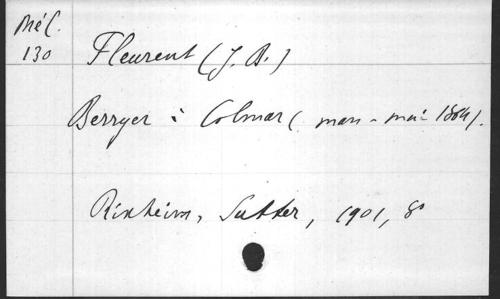 Mél.
130
Fleurent (J. B.)
Berryer à Colmar (mars - mai 1864).
Rixheim, Sutter, 1901, 8°